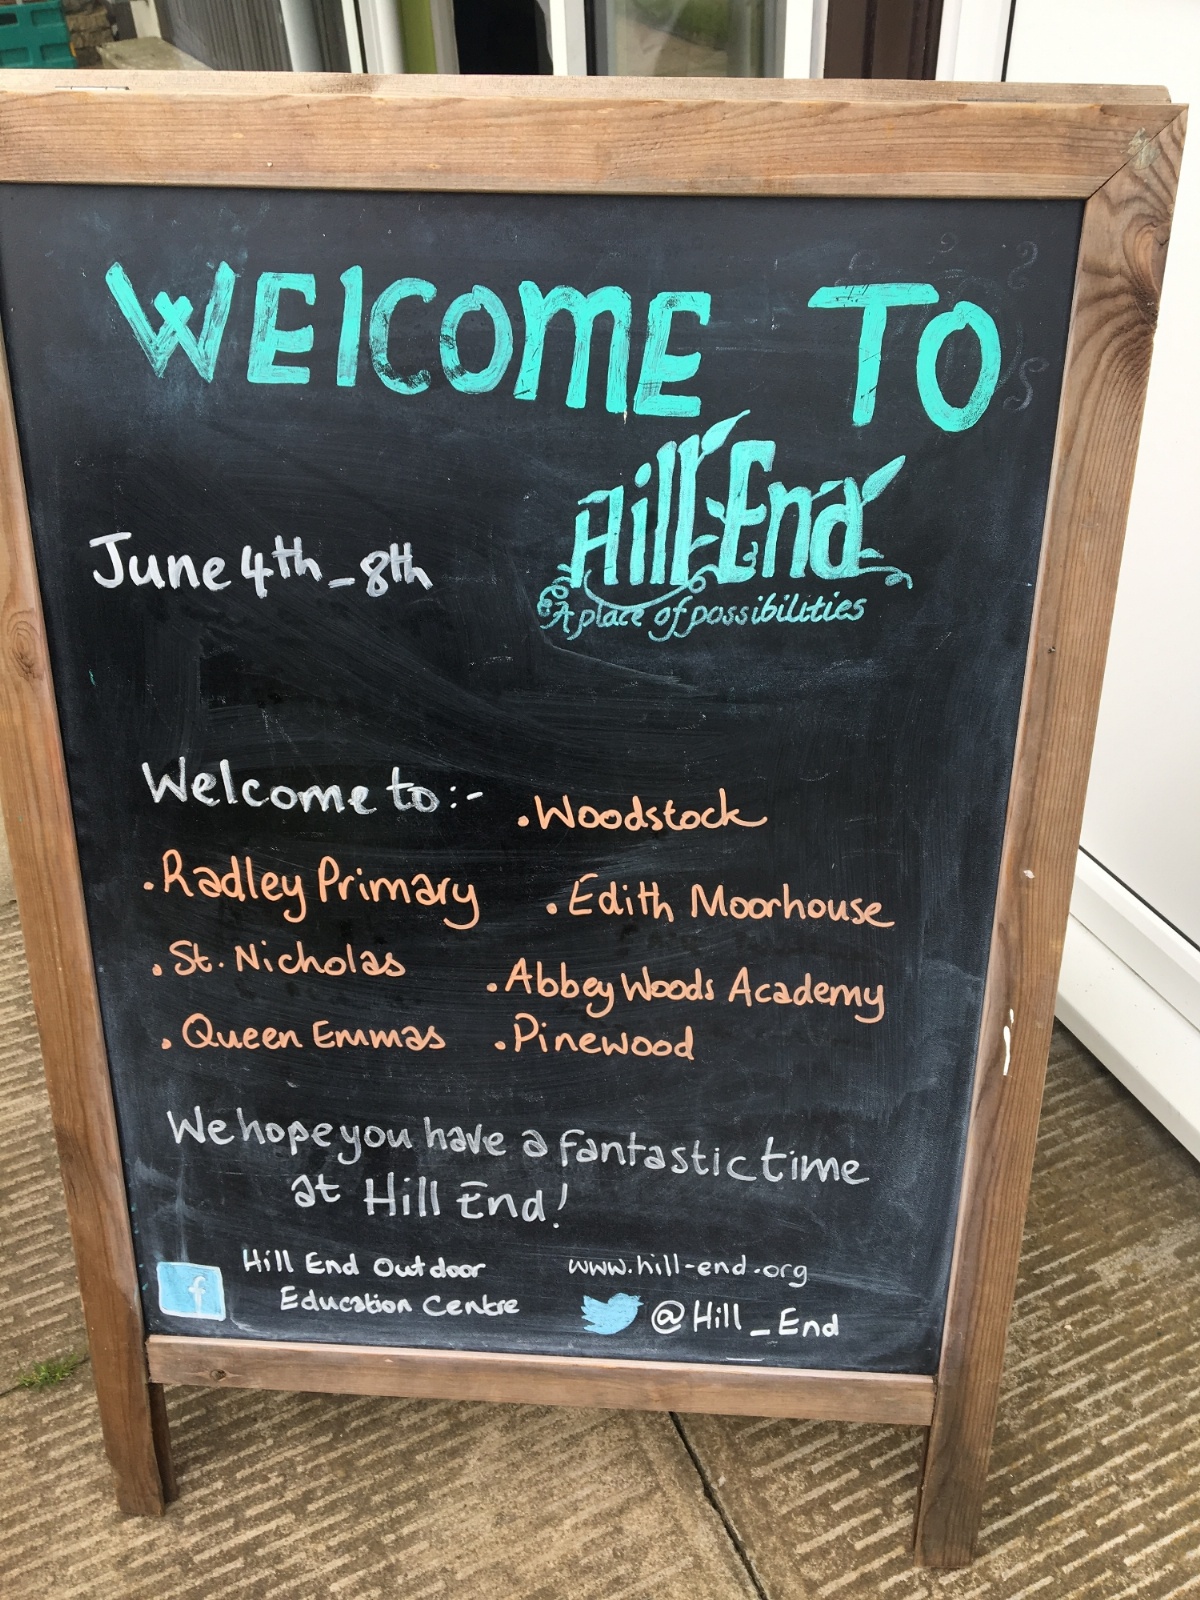 WElCOmE TO
Hill End
A place of possibilities
June 4th - 8th
Welcome to:-
• Woodstock
• Radley Primary
• Edith Moorhouse
• St. Nicholas
• Abbey Woods Academy
• Queen Emmas
• Pinewood
We hope you have a fantastic time
at Hill End!
f
Hill End Outdoor
Education Centre
www.hill-end.org
@Hill_End